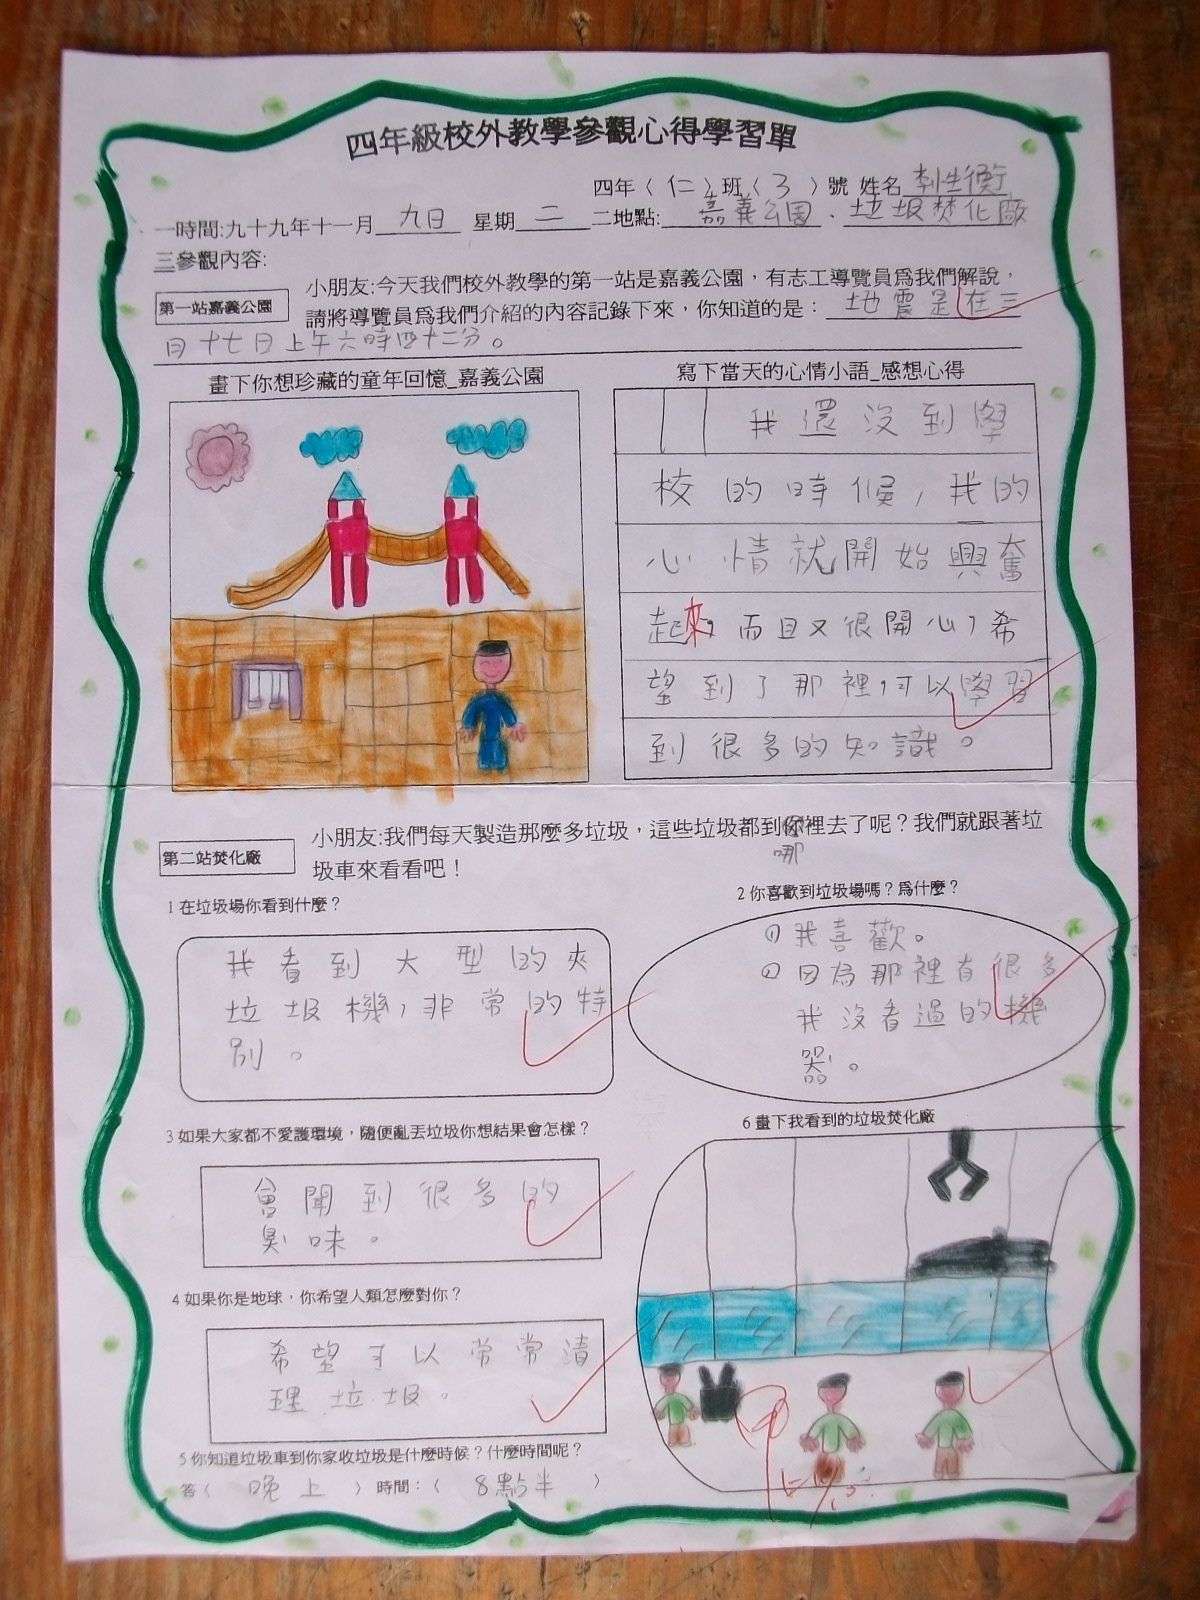 四年級校外教學參觀心得學習單
四年（仁）班（3）號 姓名
一時間:九十九年十一月九日 星期二 二地點:嘉義公園、垃圾焚化廠
三參觀內容:
第一站嘉義公園
小朋友:今天我們校外教學的第一站是嘉義公園，有志工導覽員為我們解說，
請將導覽員為我們介紹的內容記錄下來，你知道的是：地震是在三
日十七日上午六時四十二分。
畫下你想珍藏的童年回憶_嘉義公園
寫下當天的心情小語_感想心得
我還沒到學
校的時候，我的
心情就開始興奮
起來，而且又很開心，希
望到了那裡，可以學習
到很多的知識。
第二站焚化廠
小朋友:我們每天製造那麼多垃圾，這些垃圾都到哪裡去了呢？我們就跟著垃
圾車來看看吧！
1在垃圾場你看到什麼？
我看到大型的夾
垃圾機，非常的特
別。
2你喜歡到垃圾場嗎？為什麼？
(1)我喜歡。
(2)因為那裡有很多
我沒看過的機
器。
3如果大家都不愛護環境，隨便亂丟垃圾你想結果會怎樣？
會聞到很多的
臭味。
4如果你是地球，你希望人類怎麼對你？
希望可以常常清
理垃圾。
5你知道垃圾車到你家收垃圾是什麼時候？什麼時間呢？
答（晚上）時間：（8點半）
6畫下我看到的垃圾焚化廠